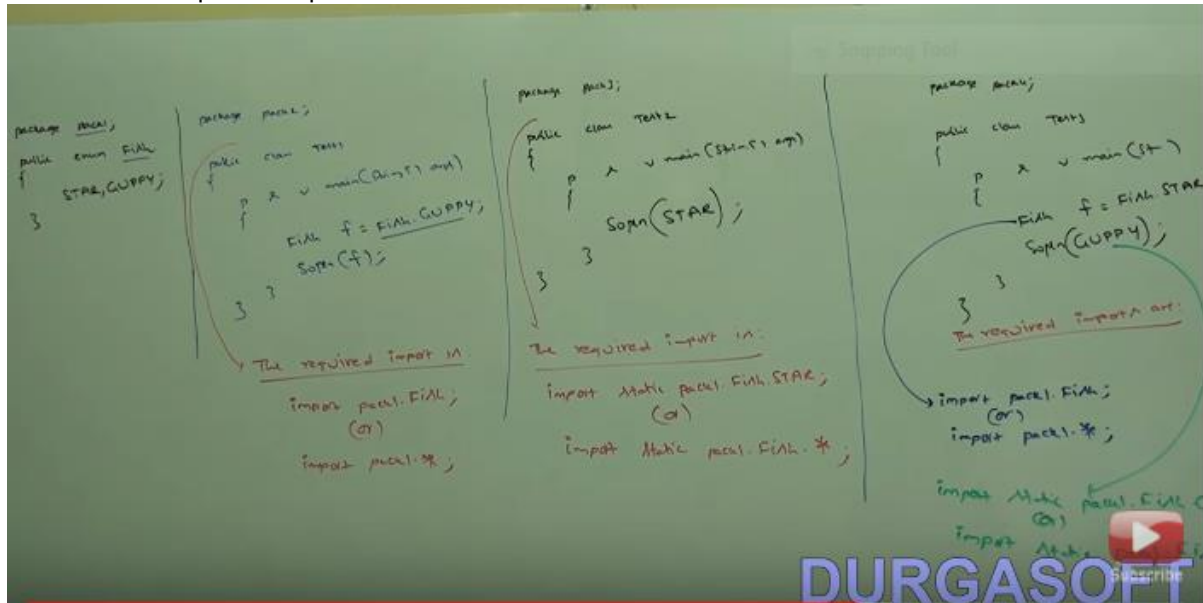 package pack1;
public enum Fish
{
STAR, GUPPY;
}
package pack2;
public class Test1
{
p s v main(String[] args)
{
Fish f = Fish.GUPPY;
Sopln(f);
}
}
The required import is
import pack1.Fish;
(or)
import pack1.*;
package pack3;
public class Test2
{
p s v main(String[] args)
{
Sopln(STAR);
}
}
The required import is:
import static pack1.Fish.STAR;
(or)
import static pack1.Fish.*;
package pack4;
public class Test3
{
p s v main(St )
{
Fish f = Fish.STAR
Sopln(GUPPY);
}
}
The required imports are:
import pack1.Fish;
(or)
import pack1.*;
import static pack1.Fish.G
(or)
import static
DURGASOFT
Subscribe
Snipping Tool